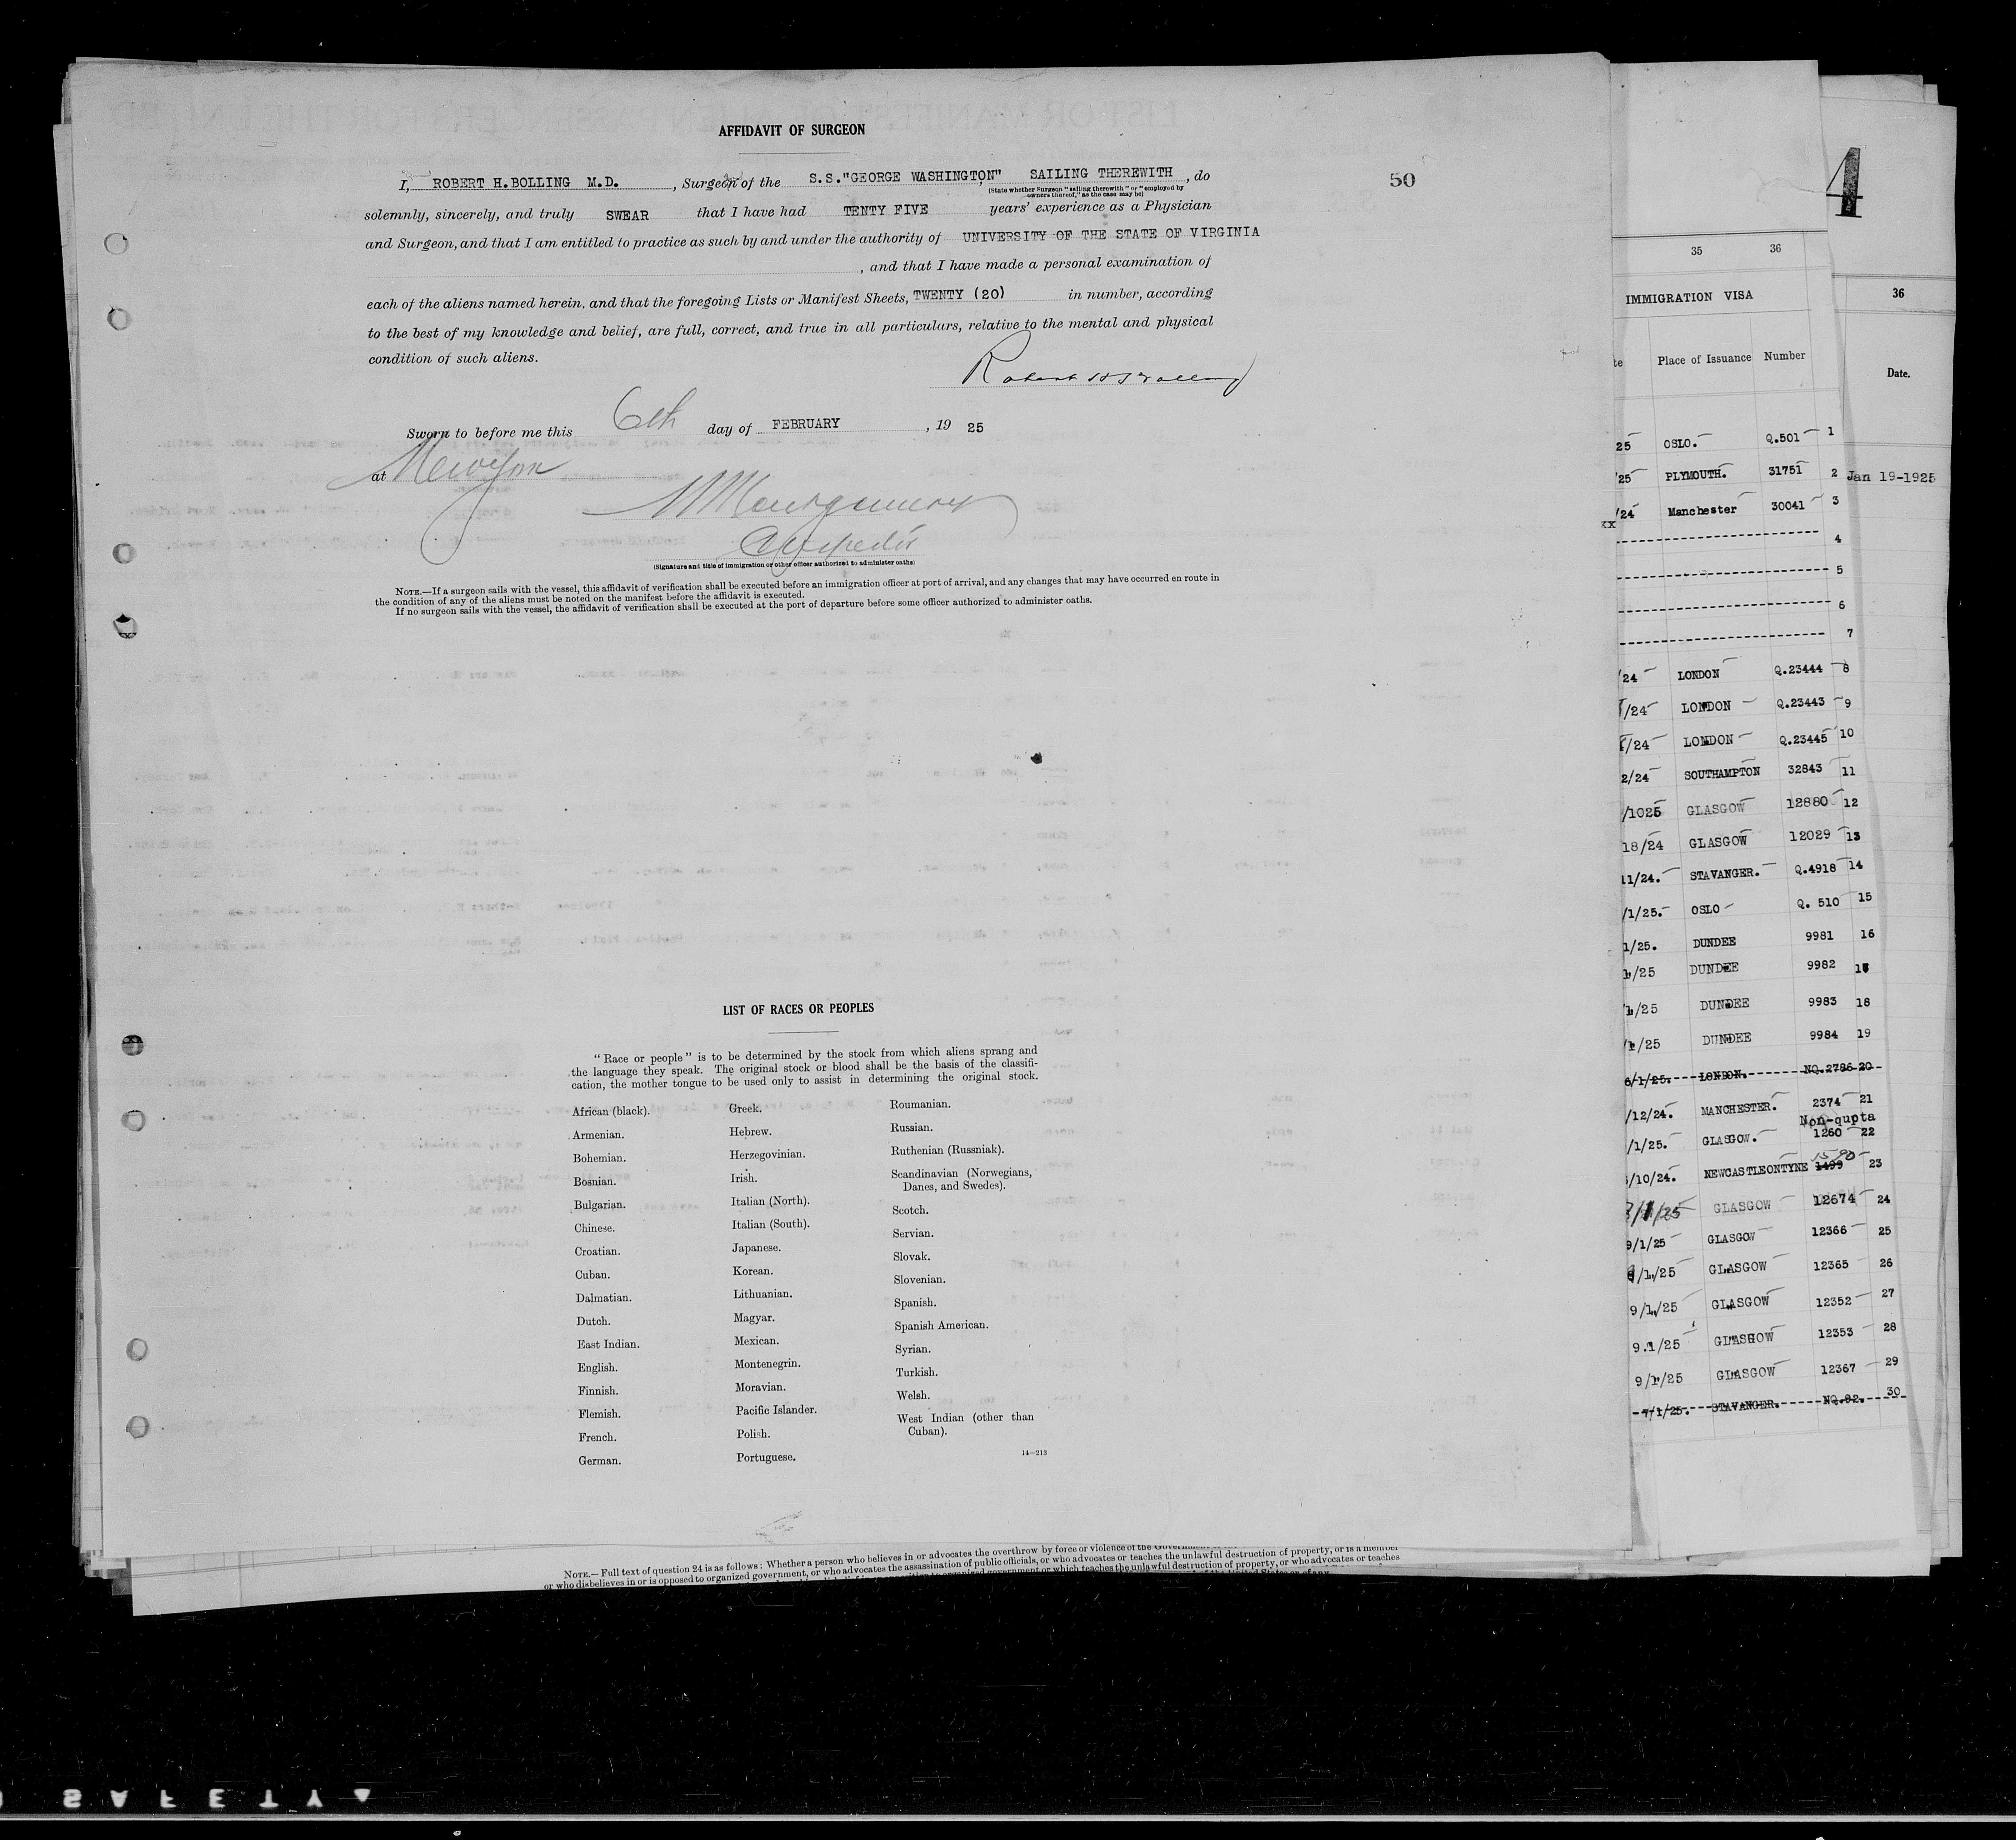 AFFIDAVIT OF SURGEON
I, ROBERT H.BOLLING M.D. , Surgeon of the S.S."GEORGE WASHINGTON", SAILING THEREWITH , do
(State whether Surgeon "sailing therewith" or "employed by
owners thereof," as the case may be)
50
solemnly, sincerely, and truly SWEAR that I have had TENTY FIVE years' experience as a Physician
and Surgeon, and that I am entitled to practice as such by and under the authority of UNIVERSITY OF THE STATE OF VIRGINIA
, and that I have made a personal examination of
each of the aliens named herein, and that the foregoing Lists or Manifest Sheets, TWENTY (20) in number, according
to the best of my knowledge and belief, are full, correct, and true in all particulars, relative to the mental and physical
condition of such aliens.
Robert H Bolling
Sworn to before me this 6th day of FEBRUARY , 19 25
at New York
Montgomery
(Signature and title of immigration or other officer authorized to administer oaths)
NOTE.—If a surgeon sails with the vessel, this affidavit of verification shall be executed before an immigration officer at port of arrival, and any changes that may have occurred en route in
the condition of any of the aliens must be noted on the manifest before the affidavit is executed.
If no surgeon sails with the vessel, the affidavit of verification shall be executed at the port of departure before some officer authorized to administer oaths.
LIST OF RACES OR PEOPLES
"Race or people" is to be determined by the stock from which aliens sprang and
the language they speak. The original stock or blood shall be the basis of the classifi-
cation, the mother tongue to be used only to assist in determining the original stock.
African (black).
Armenian.
Bohemian.
Bosnian.
Bulgarian.
Chinese.
Croatian.
Cuban.
Dalmatian.
Dutch.
East Indian.
English.
Finnish.
Flemish.
French.
German.
Greek.
Hebrew.
Herzegovinian.
Irish.
Italian (North).
Italian (South).
Japanese.
Korean.
Lithuanian.
Magyar.
Mexican.
Montenegrin.
Moravian.
Pacific Islander.
Polish.
Portuguese.
Roumanian.
Russian.
Ruthenian (Russniak).
Scandinavian (Norwegians,
Danes, and Swedes).
Scotch.
Servian.
Slovak.
Slovenian.
Spanish.
Spanish American.
Syrian.
Turkish.
Welsh.
West Indian (other than
Cuban).
14—213
NOTE.— Full text of question 24 is as follows: Whether a person who believes in or advocates the overthrow by force or violence of the Government
or who disbelieves in or is opposed to organized government, or who advocates the assassination of public officials, or who advocates or teaches the unlawful destruction of property, or is a member
35 36
IMMIGRATION VISA
te Place of Issuance Number
25 OSLO. Q.501 1
/25 PLYMOUTH. 31751 2
/24 Manchester 30041 3
xx
4
5
6
7
/24 LONDON Q.23444 8
/24 LONDON Q.23443 9
/24 LONDON Q.23445 10
2/24 SOUTHAMPTON 32843 11
/1025 GLASGOW 12880 12
18/24 GLASGOW 12029 13
11/24. STAVANGER. Q.4918 14
/1/25. OSLO Q. 510 15
1/25. DUNDEE 9981 16
/25 DUNDEE 9982 17
/1/25 DUNDEE 9983 18
/1/25 DUNDEE 9984 19
6/1/25. LONDON. NQ.2786 20
/12/24. MANCHESTER. 2374 21
Non-qupta
/1/25. GLASGOW. 1260 22
/10/24. NEWCASTLEONTYNE 1499 1590 23
/1/25 GLASGOW 12674 24
9/1/25 GLASGOW 12366 25
/1/25 GLASGOW 12365 26
9/1/25 GLASGOW 12352 27
9.1/25 GLASGOW 12353 28
9/1/25 GLASGOW 12367 29
7/1/25. STAVANGER. NQ.92. 30
4
36
Date.
Jan 19-1925
SAFETY